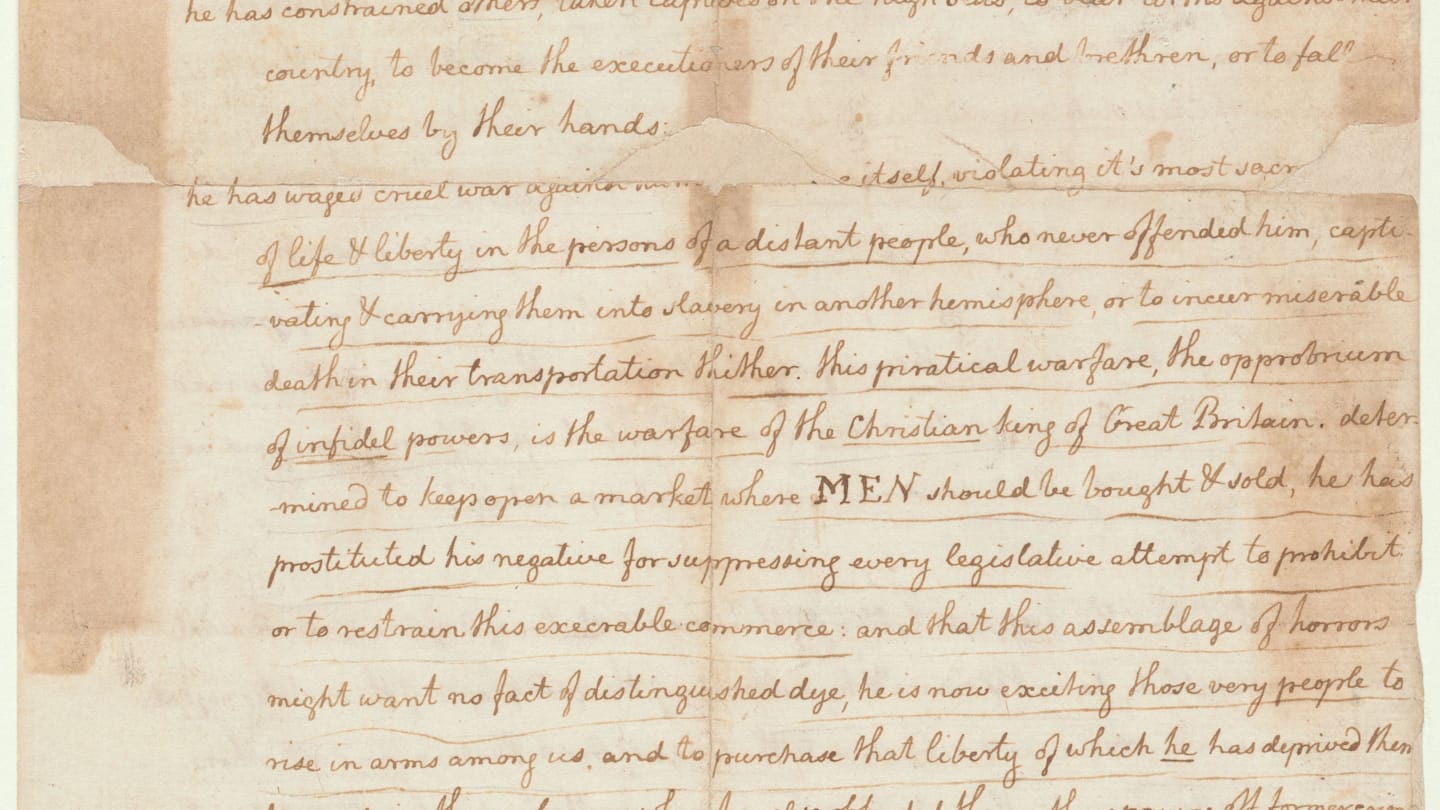 he has constrained others, taken captives on the high seas, to bear arms against their
country, to become the executioners of their friends and brethren, or to fall
themselves by their hands:
he has waged cruel war against itself, violating it's most
of life & liberty in the persons of a distant people, who never offended him, capti-
-vating & carrying them into slavery in another hemisphere, or to incur miserable
death in their transportation thither. this piratical warfare, the opprobrium
of infidel powers, is the warfare of the Christian king of Great Britain. deter-
-mined to keep open a market where MEN should be bought & sold, he has
prostituted his negative for suppressing every legislative attempt to prohibit
or to restrain this execrable commerce: and that this assemblage of horrors
might want no fact of distinguished dye, he is now exciting those very people to
rise in arms among us, and to purchase that liberty of which he has deprived them